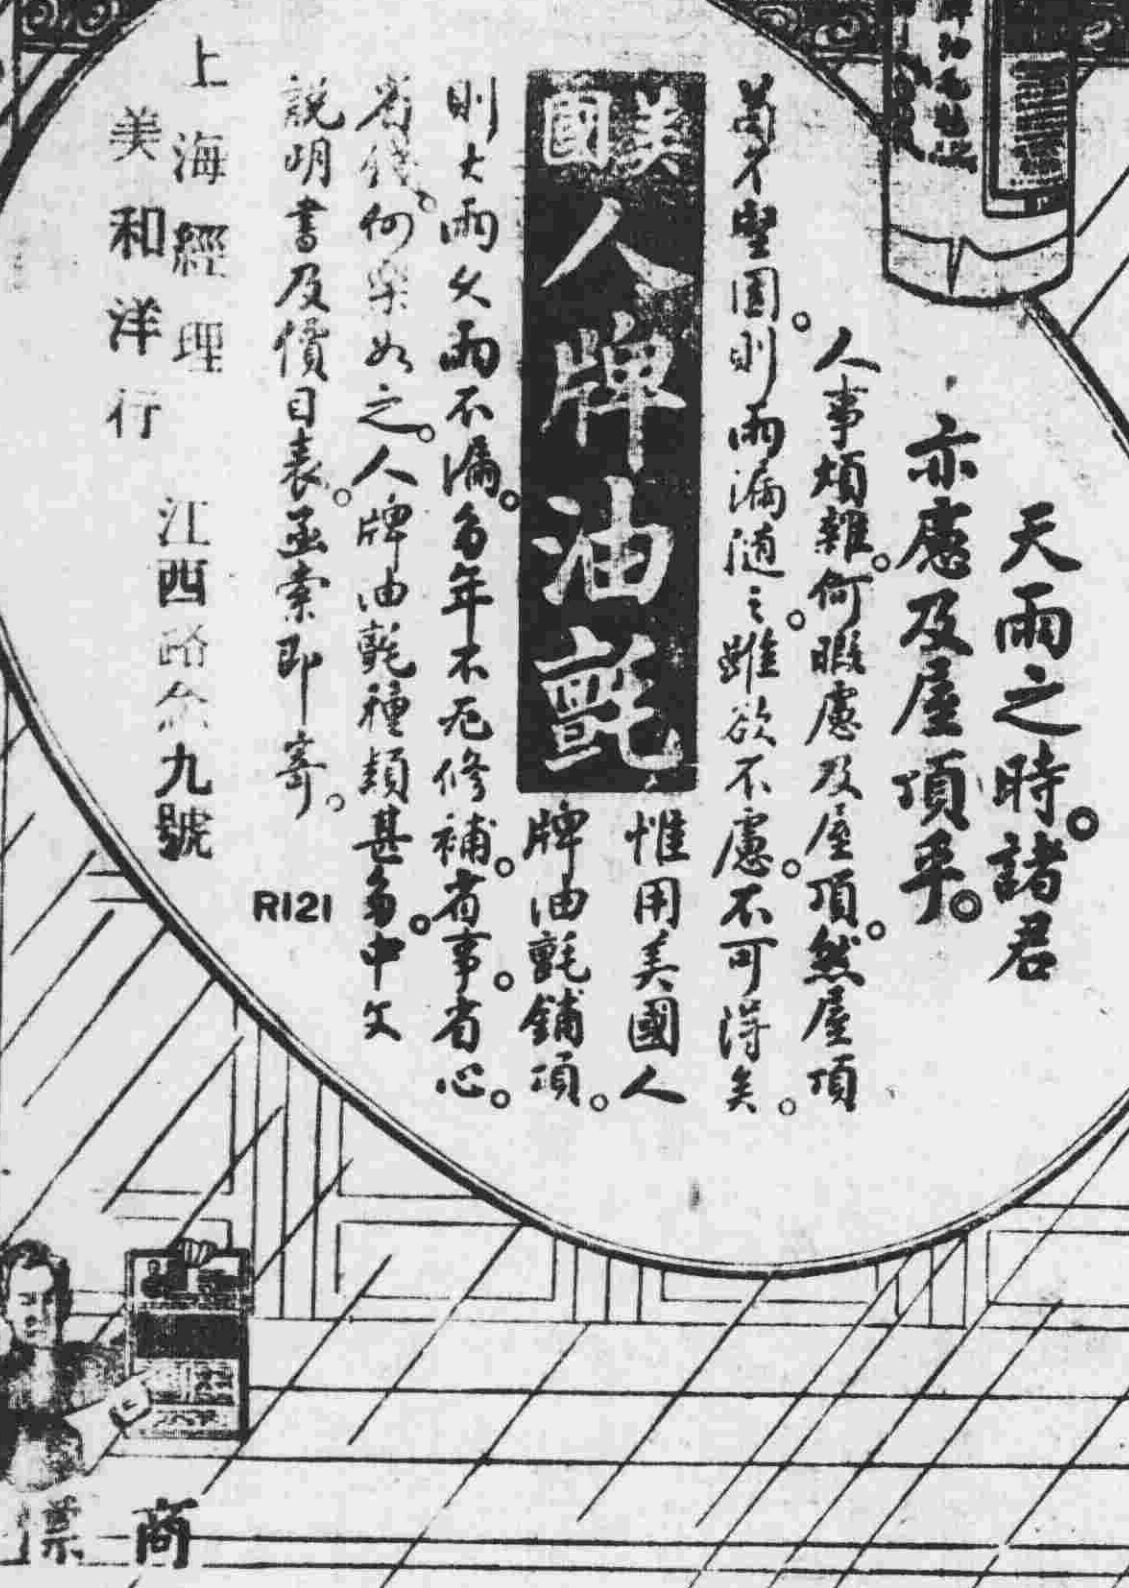 天雨之時。諸君
亦慮及屋頂乎。
人事煩雜。何暇慮及屋頂。然屋頂
苟不堅固。則雨漏随之。雖欲不慮。不可得矣。
美國
人牌油氈
惟用美國人
牌油氈鋪頂。
則大雨久雨不漏。多年不冘修補。省事。省心。
省錢。何樂如之。人牌油氈種類甚多。中文
說明書及價目表。函索即寄。
R121
上海經理
美和洋行
江西路 九號
商標